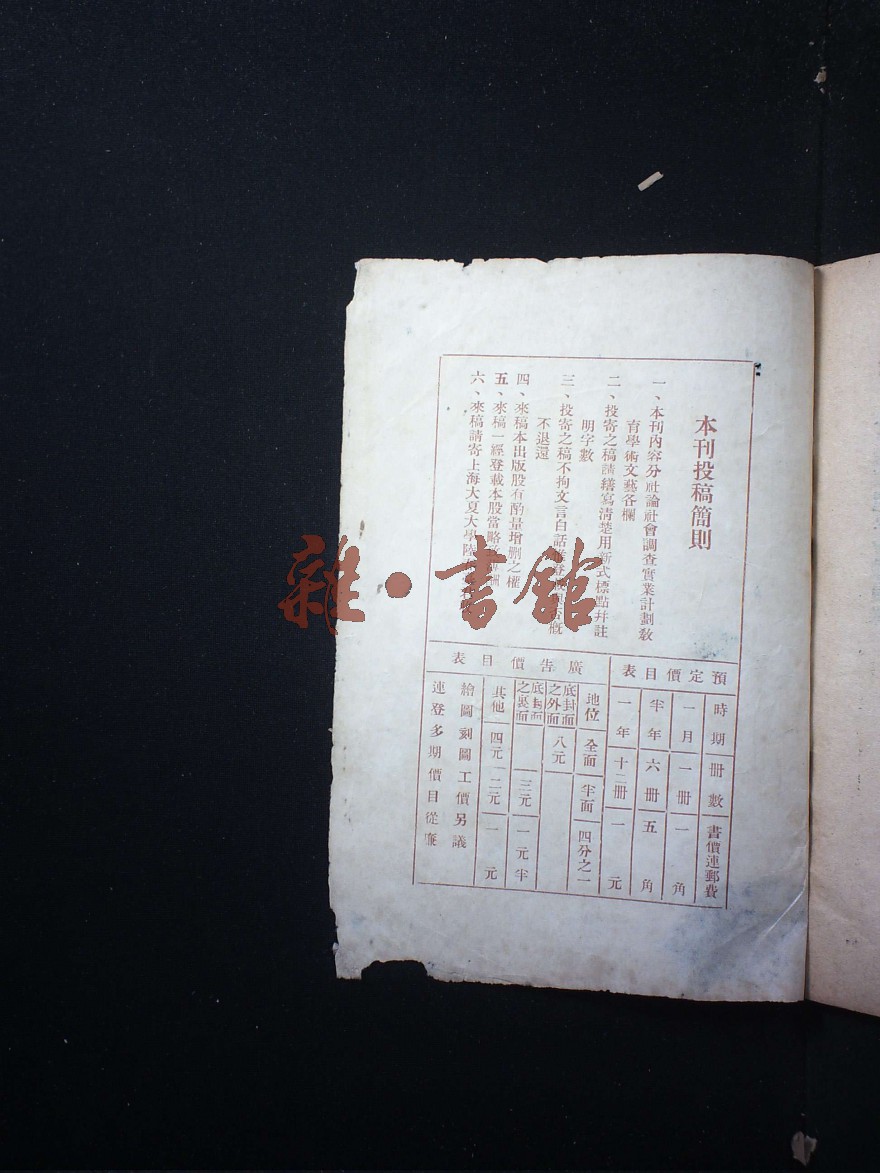 本刊投稿簡則
一、本刊內容分社論社會調查實業計劃教
育學術文藝各欄
二、投寄之稿請繕寫清楚用新式標點幷註
明字數
三、投寄之稿不拘文言白話
概
不退還
四、來稿本出版股有酌量增刪之權
五、來稿一經登載本股當略
六、來稿請寄上海大夏大學
預定價目表
時期 冊數 書價連郵費
一月 一冊 一角
半年 六冊 五角
一年 十二冊 一元
廣告價目表
地位 全面 半面 四分之一
底封面之外面 八元
底封面之裏面 三元 一元半
其他 四元 二元 一元
繪圖刻圖工價另議
連登多期價目從廉
雜·書館